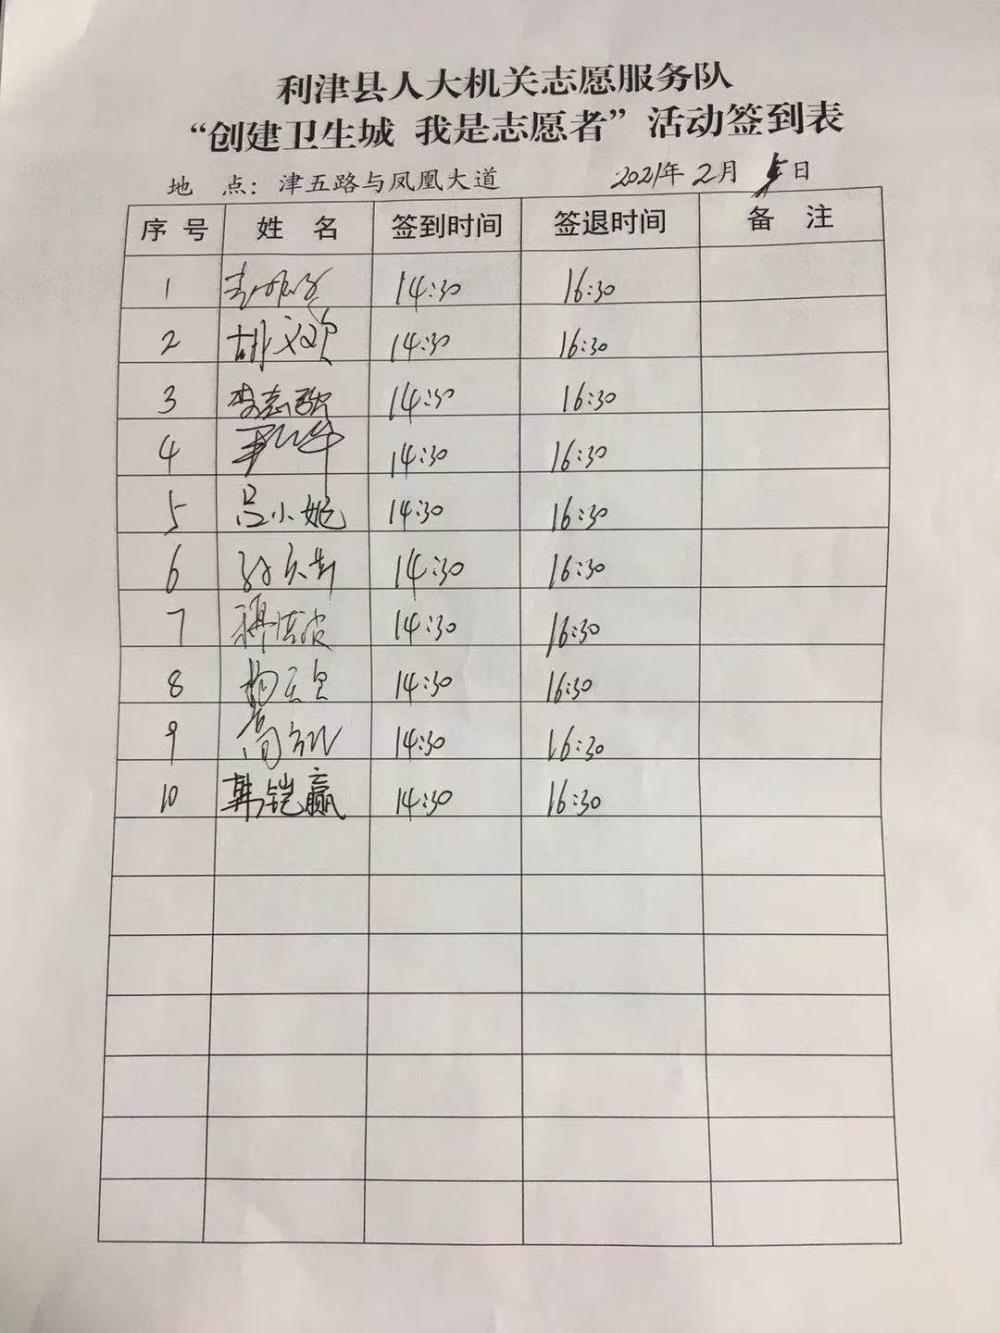 利津县人大机关志愿服务队
“创建卫生城 我是志愿者”活动签到表
地 点：津五路与凤凰大道 2021年2月 日
序号 姓名 签到时间 签退时间 备注
1 14:30 16:30
2 胡文欣 14:30 16:30
3 李志敏 14:30 16:30
4 14:30 16:30
5 吕小妮 14:30 16:30
6 14:30 16:30
7 14:30 16:30
8 14:30 16:30
9 14:30 16:30
10 韩铠赢 14:30 16:30